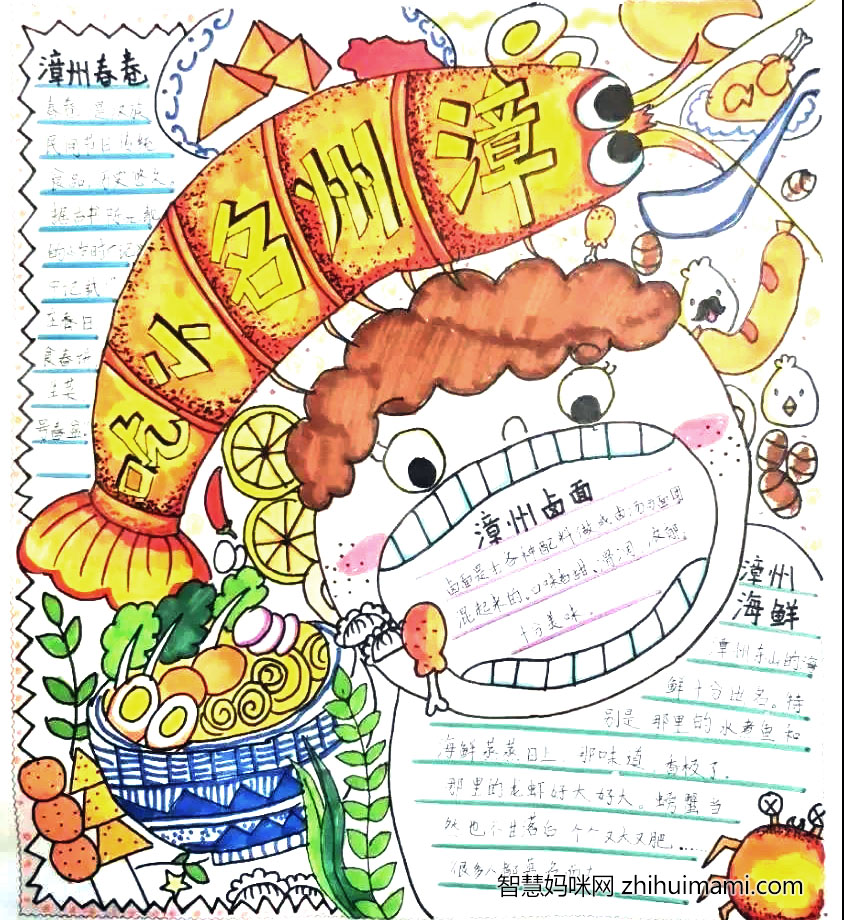 漳州名小吃
漳州春卷
春卷,是汉族
民间节日传统
食品,历史悠久。
立春日
食春
生菜
号春盘
漳州卤面
卤面是十各种配料做成卤汤
混起来的,口味香甜、滑润、爽朗
十分美味。
漳州
海鲜
漳州东山的海
鲜十分出名。特
别是那里的水章鱼和
海鲜蒸蒸日上,那味道,香极了。
那里的龙虾好大好大。螃蟹当
然也不甘落白,个个又大又肥……
很多人都
智慧妈咪网 zhihuimami.com